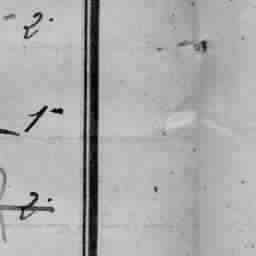 - 2.
1-
2.